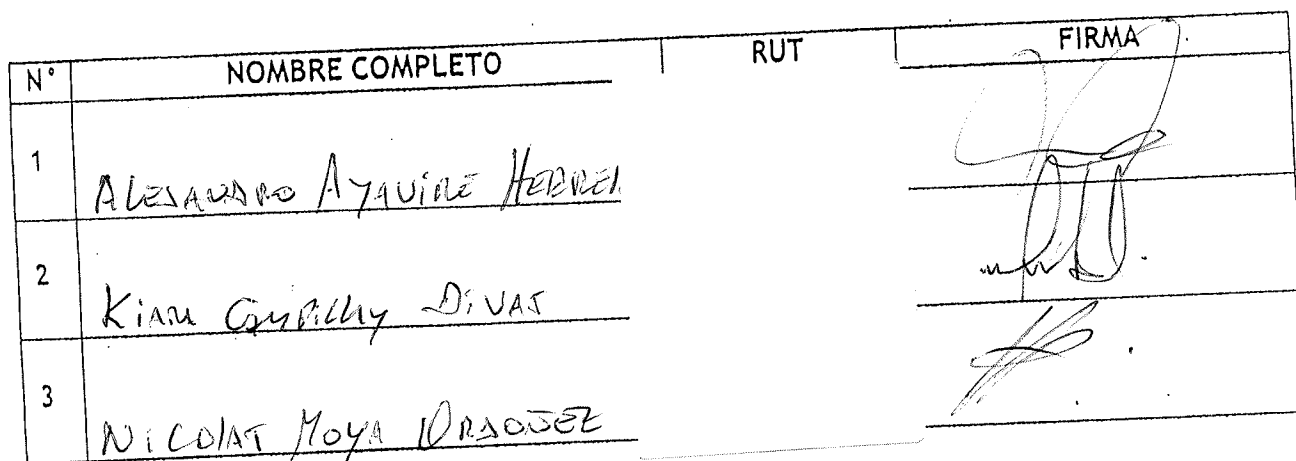 N° NOMBRE COMPLETO RUT FIRMA
1 ALEJANDRO AYAVIRE HERRER
2 Kiam DiVAS
3 NiCOLAS MOYA ORDOÑEZ